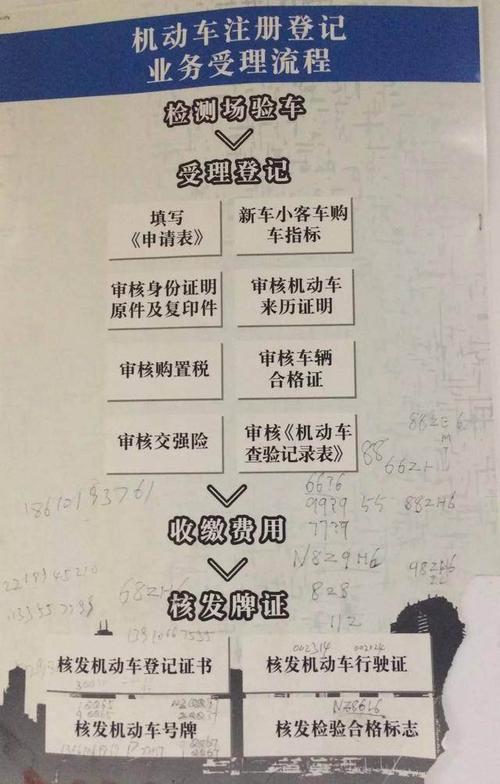 机动车注册登记
业务受理流程
检测场验车
受理登记
填写
《申请表》
新车小客车购
车指标
审核身份证明
原件及复印件
审核机动车
来历证明
审核购置税
审核车辆
合格证
审核交强险
审核《机动车
查验记录表》
88
662H
882H6
6676
9979
55
7779
18610193761
收缴费用
N8Z9H6
828
682H6
112
核发牌证
13910667535
002314
核发机动车登记证书
核发机动车行驶证
NZ86L6
核发机动车号牌
核发检验合格标志